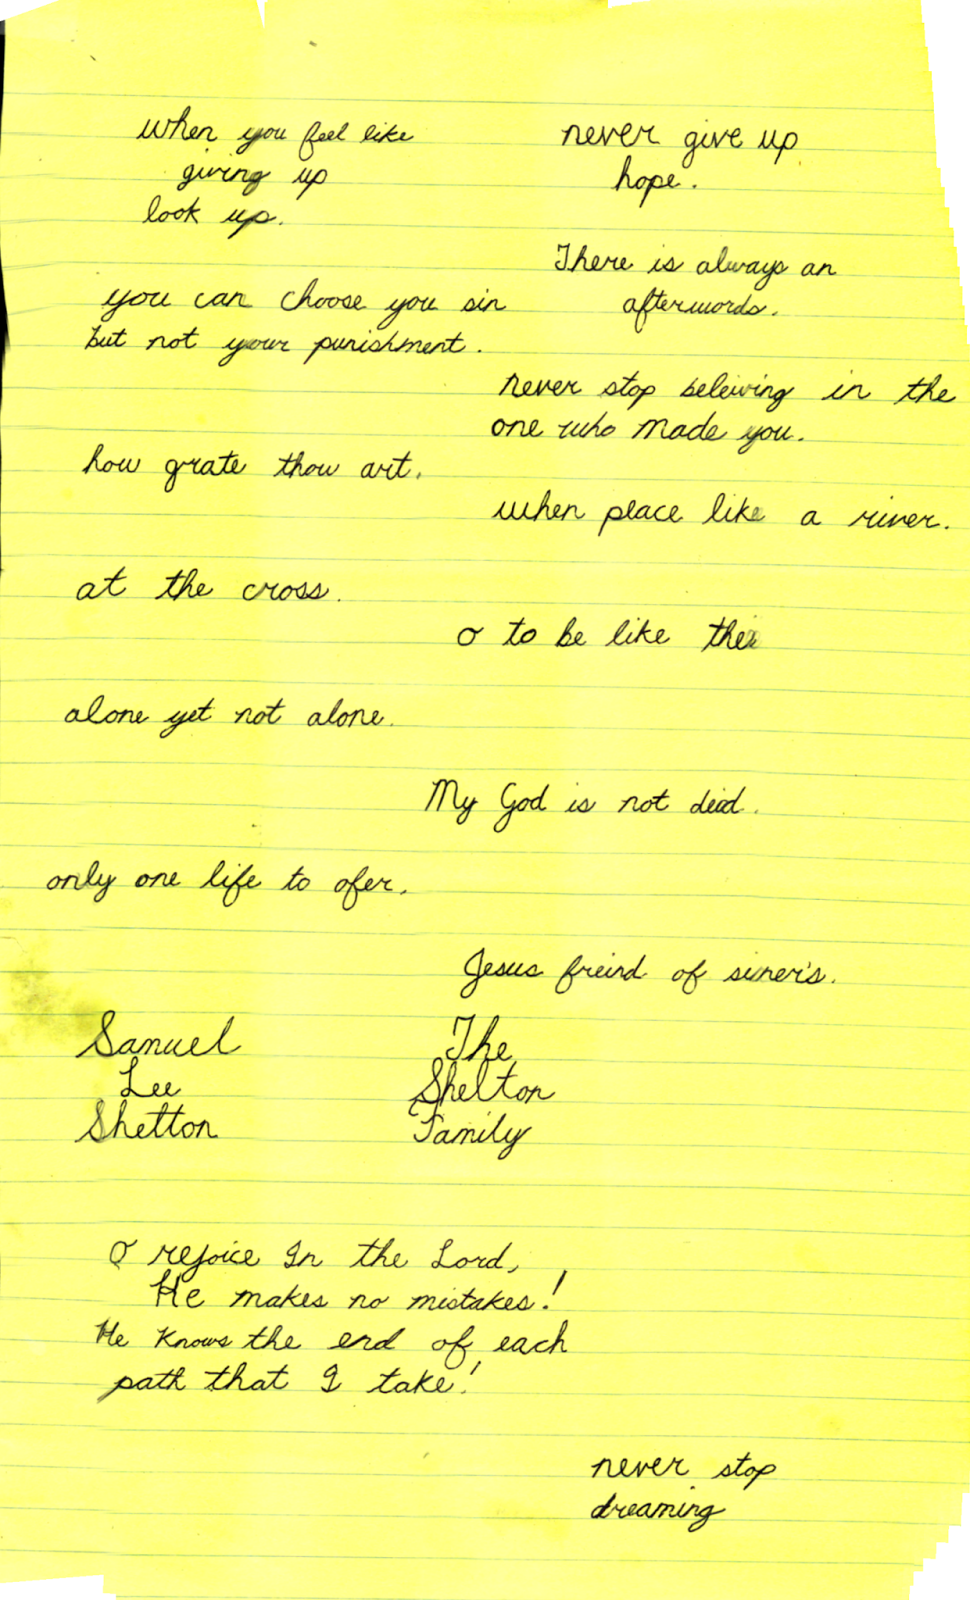 when you feel like
giving up
look up.
never give up
hope.
There is always an
afterwords.
you can choose you sin
but not your punishment.
never stop beleiving in the
one who made you.
how grate thow art.
when peace like a river.
at the cross.
o to be like thee
alone yet not alone.
My God is not dead.
only one life to ofer.
Jesus freind of siner's.
Samuel
Lee
Shetton
The
Shelton
Family
O rejoice In the Lord,
He makes no mistakes!
He knows the end of each
path that I take!
never stop
dreaming